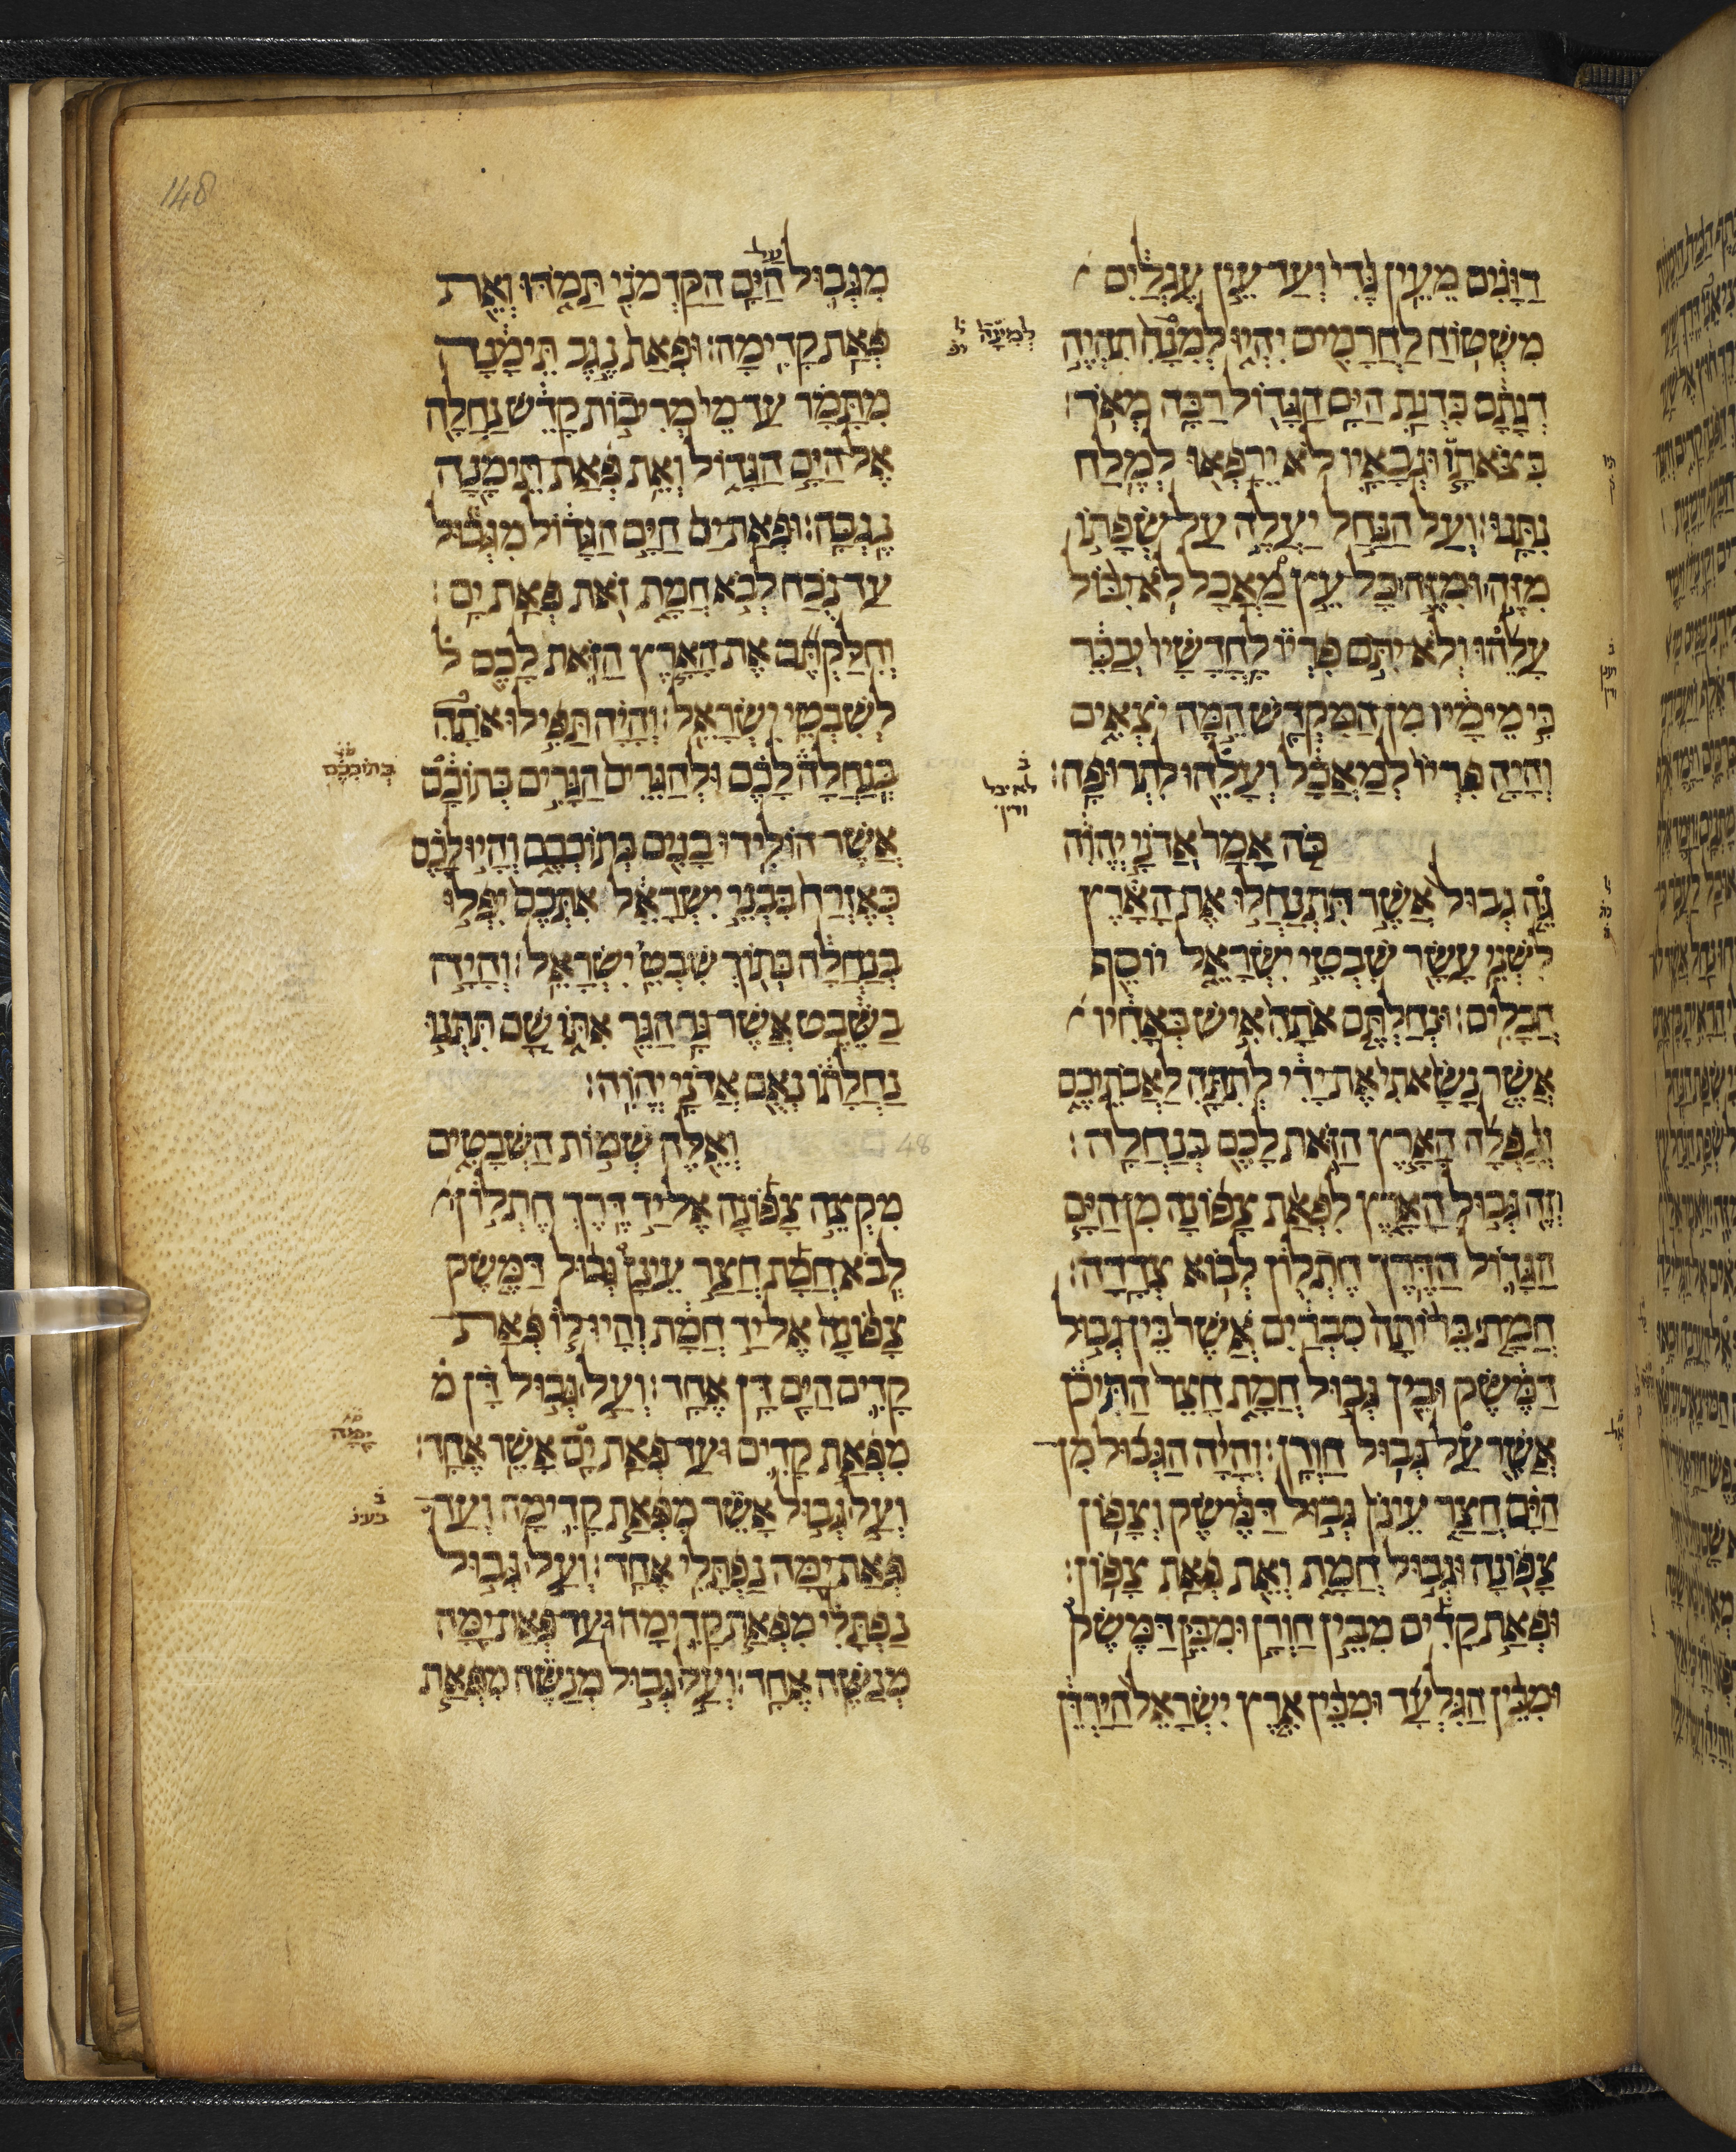 דוגים מעין גדי ועד עין עגלים
משטוח לחרמים יהיו למנה תהיה
דגתם כדגת הים הגדול רבה מאד׃
בצאתו וגבאיו לא ירפאו למלח
נתנו׃ ועל הנחל יעלה על שפתו
מזה ומזה כל עץ מאכל לא יבול
עלהו ולא יתם פריו לחדשיו יבכר
כי מימיו מן המקדש המה יצאים
והיה פריו למאכל ועלהו לתרופה׃
כה אמר אדני יהוה
גה גבול אשר תתנחלו את הארץ
לשני עשר שבטי ישראל יוסף
חבלים׃ ונחלתם אתה איש כאחיו
אשר נשאתי את ידי לתתה לאבתיכם
ונפלה הארץ הזאת לכם בנחלה׃
וזה גבול הארץ לפאת צפונה מן הים
הגדול הדרך חתלון לבוא צדדה׃
חמת ברותה סברים אשר בין גבול
דמשק ובין גבול חמת חצר התיכון
אשר על גבול חורן׃ והיה הגבול מן
הים חצר עינון גבול דמשק וצפון
צפונה וגבול חמת ואת פאת צפון׃
ופאת קדים מבין חורן ומבין דמשק
ומבין הגלעד ומבין ארץ ישראל הירדן
מגבול על הים הקדמוני תמדו ואת
פאת קדימה׃ ופאת נגב תימנה
מתמר עד מי מריבות קדש נחלה
אל הים הגדול ואת פאת תימנה
נגבה׃ ופאת ים הים הגדול מגבול
עד נכח לבוא חמת זאת פאת ים׃
וחלקתם את הארץ הזאת לכם ל
לשבטי ישראל׃ והיה תפילו אתה
בנחלה לכם ולהגרים הגרים בתוככם
אשר הולידו בנים בתוככם והיו לכם
כאזרח בבני ישראל אתכם יפלו
בנחלה בתוך שבטי ישראל׃ והיה
בשבט אשר גר הגר אתו שם תתנו
נחלתו נאם אדני יהוה׃
48 ואלה שמות השבטים
מקצה צפונה אל יד דרך חתלון
לבוא חמת חצר עינן גבול דמשק
צפונה אל יד חמת והיו לו פאת
קדים הים דן אחד׃ ועל גבול דן מ
מפאת קדים ועד פאת ים אשר אחד׃
ועל גבול אשר מפאת קדימה ועד
פאת ימה נפתלי אחד׃ ועל גבול
נפתלי מפאת קדימה ועד פאת ימה
מנשה אחד׃ ועל גבול מנשה מפאת
למינה
לא יבל
בתוככם
ימה
148